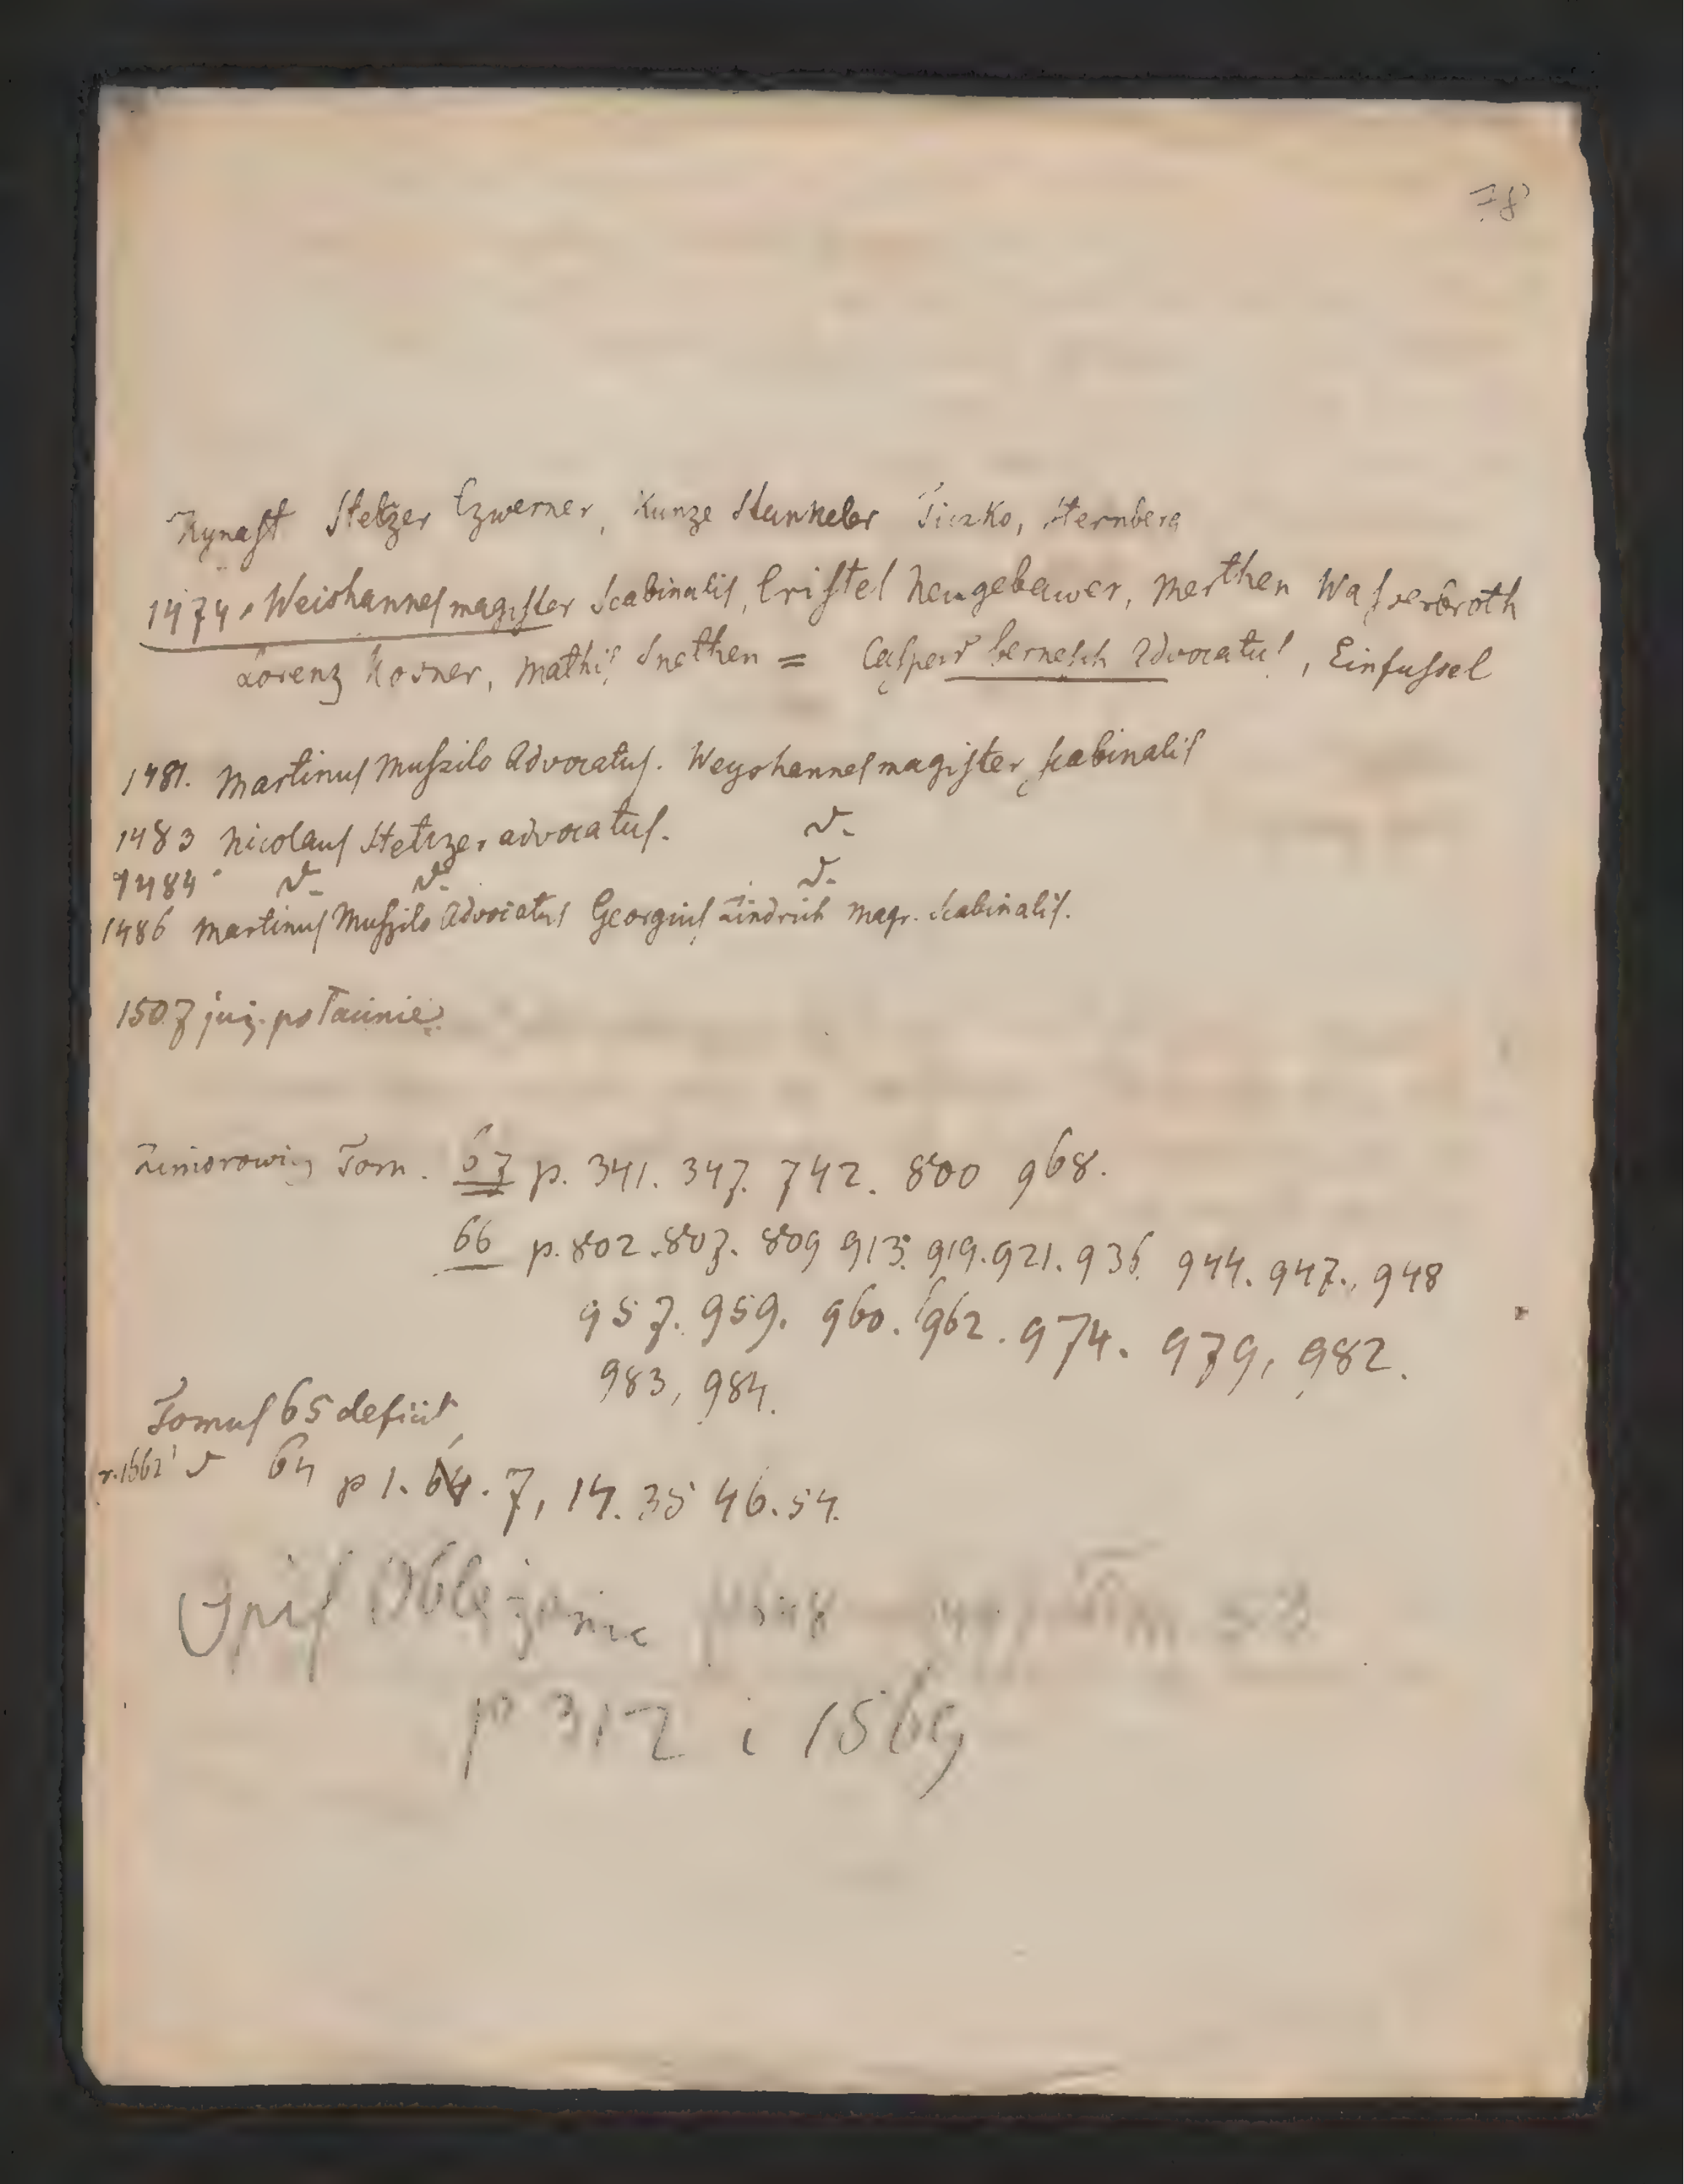 78
Kynast Stetzer Czwerner, Kunze Stanneler Ticzko, Sternberg
1474. Weishannes magister Scabinalis, Cristel Neugebawer, Merthen Wasserbroth
Lorenz Kosner, Mathis Snethen = Casper bernesch Advocatus, Einfussel
1481. Martinus Muszilo Advocatus. Weyshannes magister scabinalis
1483 Nicolaus Stetzer advocatus. d.
1484 d. d. d.
1486 Martinus Muszilo Advocatus Georgius Lindrich Magr. Scabinalis.
1507 już po łacinie
Zimorowicz Tom. 67 p. 341. 347. 742. 800 968.
66 p. 802. 807. 809 913. 919. 921. 936. 944. 947., 948
957. 959. 960. 962. 974. 979, 982.
983, 984.
Tomus 65 deficit
r. 1662 d 64 p 1. 6. 7, 14. 35 46. 54.
Opis Oblężenie
p 312 i 1569